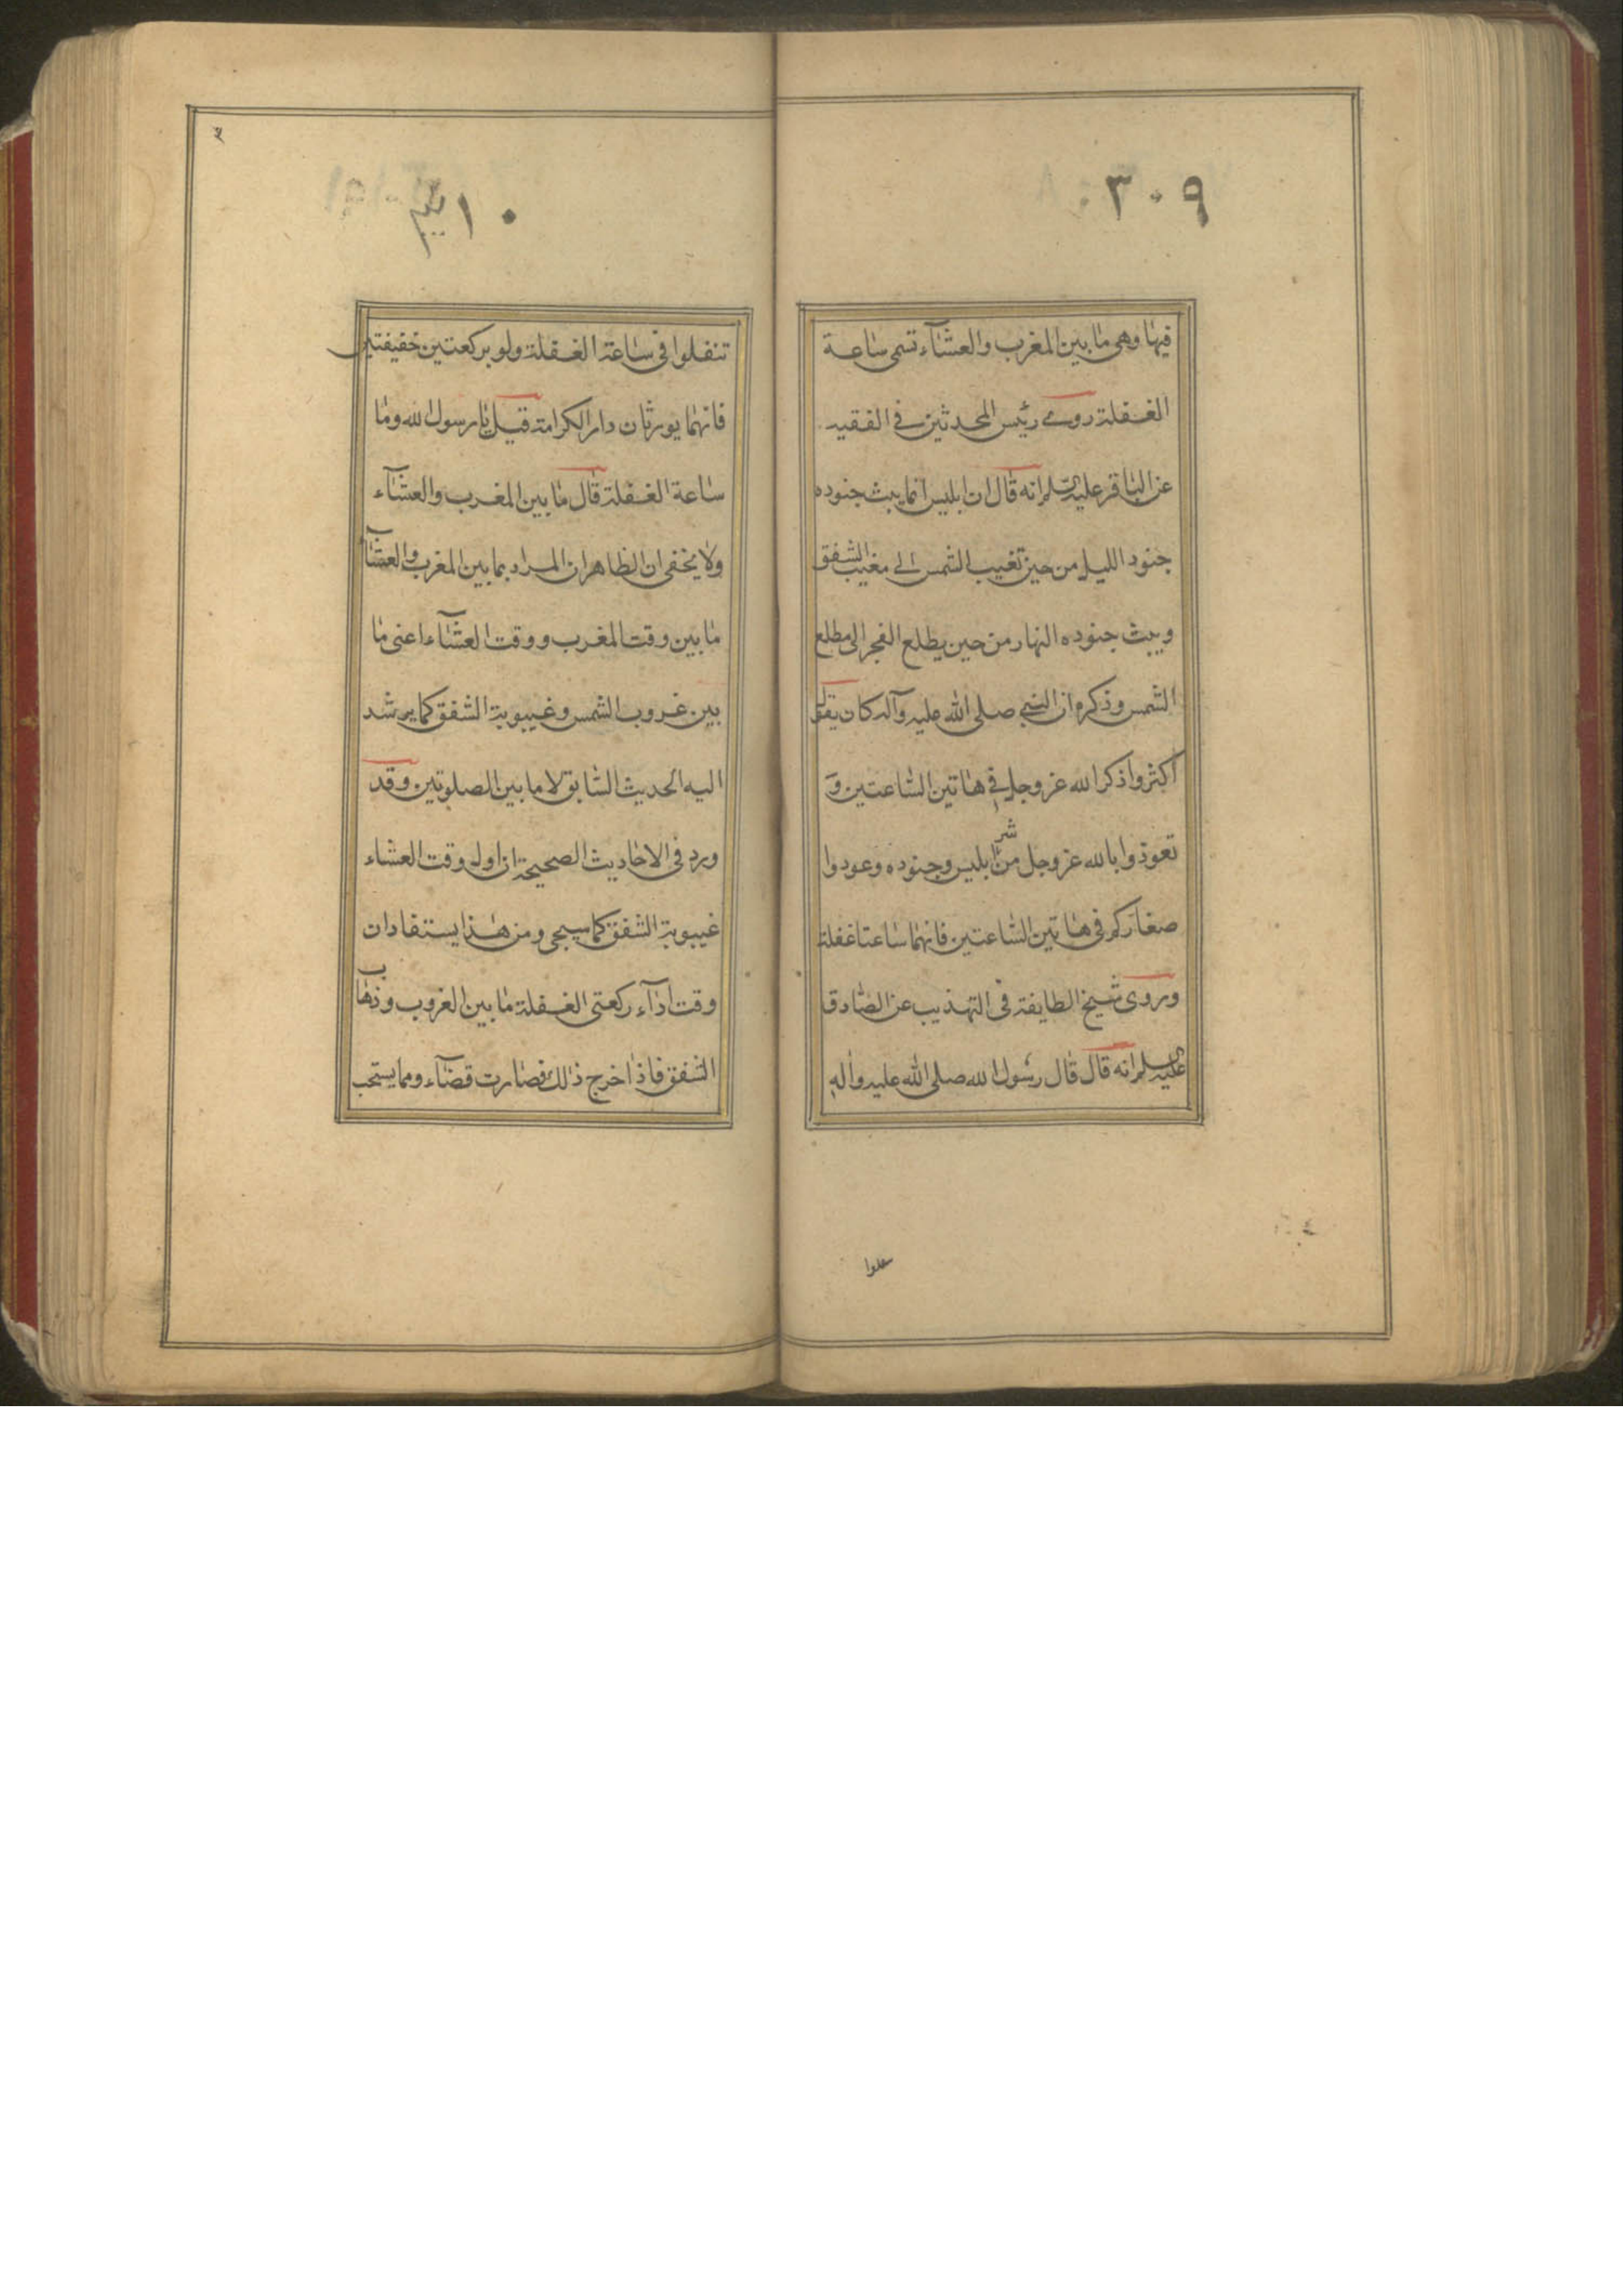 ٣٠٩
فيها وهي ما بين المغرب والعشآء تسمى ساعة
الغفلة روى رئيس المحدثين في الفقيه
عن الباقر عليه السلم انه قال ان ابليس انما يبث جنوده
جنود الليل من حين تغيب الشمس الى مغيب الشفق
ويبث جنوده النهار من حين يطلع الفجر الى مطلع
الشمس وذكر ان النبي صلى الله عليه وآله كان يقول
اكثروا ذكر الله عز وجل في هاتين الساعتين و
تعوذوا بالله عز وجل من شر ابليس وجنوده وعوذوا
صغاركم في هاتين الساعتين فانهما ساعتا غفلة
وروى شيخ الطايفة في التهذيب عن الصادق
عليه السلم انه قال قال رسول الله صلى الله عليه وآله
٣١٠
تنفلوا في ساعة الغفلة ولو بركعتين خفيفتين
فانهما يورثان دار الكرامة قيل يا رسول الله وما
ساعة الغفلة قال ما بين المغرب والعشآء
ولا يخفى ان الظاهر ان المراد بما بين المغرب والعشآ
ما بين وقت المغرب ووقت العشآء اعنى ما
بين غروب الشمس وغيبوبة الشفق كما يرشد
اليه الحديث السابق لا ما بين الصلوتين وقد
ورد في الاحاديث الصحيحة ان اول وقت العشاء
غيبوبة الشفق كما سيجئ ومن هذا يستفاد ان
وقت ادآء ركعتى الغفلة ما بين الغروب وذهاب
الشفق فاذا خرج ذلك صارت قضآء ومما يستحب